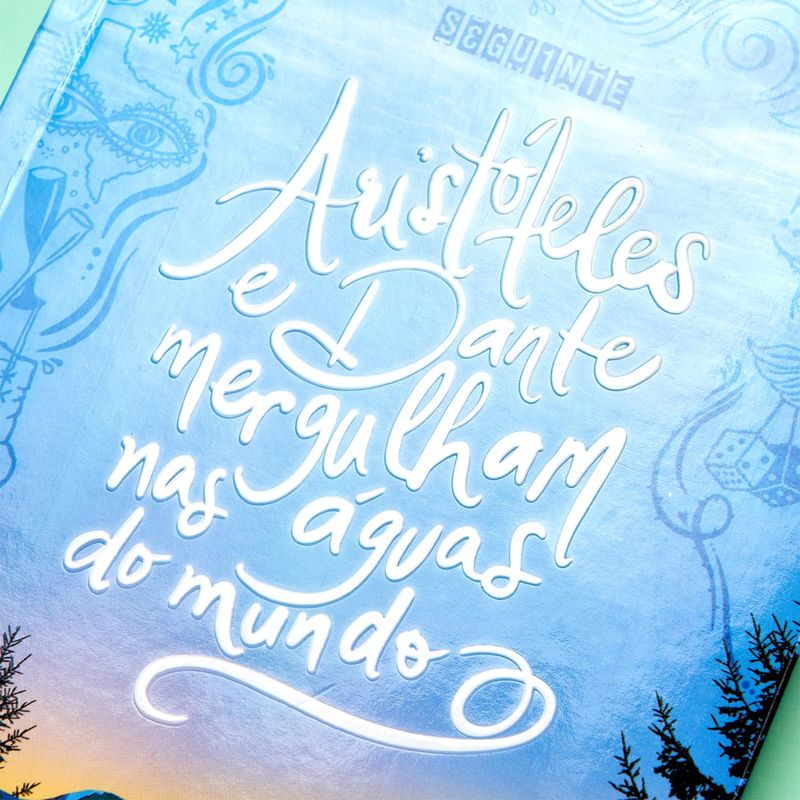 SEGUINTE
Aristóteles
e Dante
mergulham
nas águas
do mundo